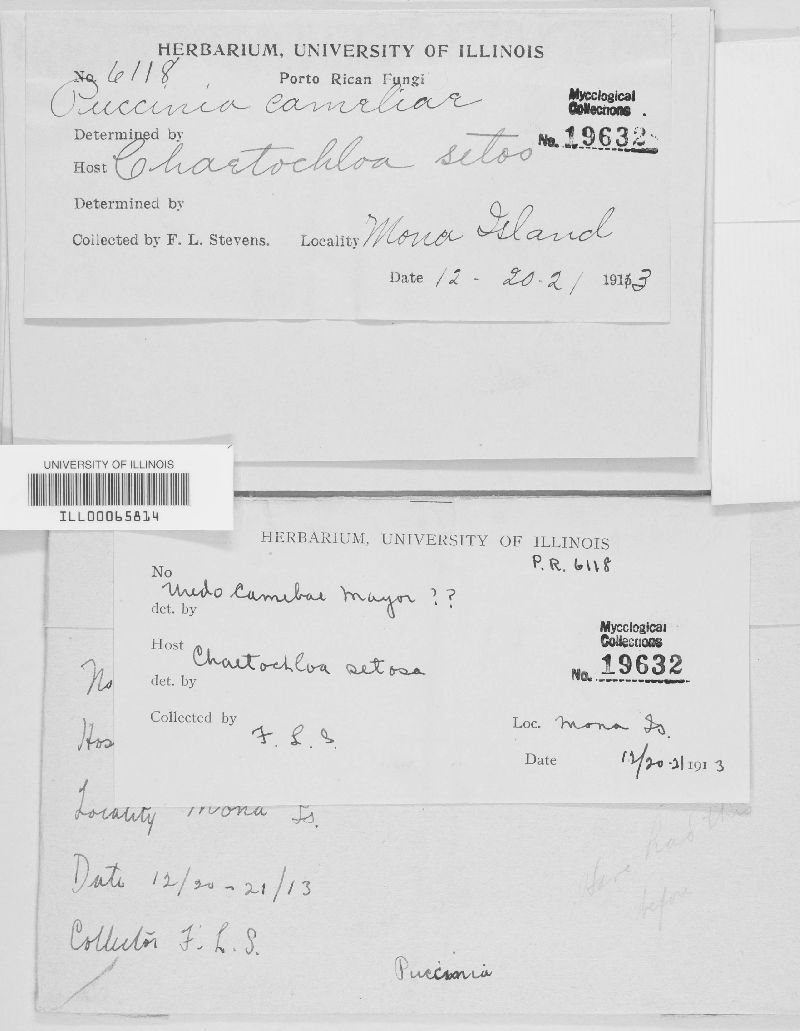 HERBARIUM, UNIVERSITY OF ILLINOIS
No. 6118
Porto Rican Fungi
Puccinia cameliae
Mycological
Collections
No. 19632
Determined by
Host Chaetochloa setos
Determined by
Collected by F. L. Stevens. Locality Mona Island
Date 12 - 20-21 1913
UNIVERSITY OF ILLINOIS
ILL00065814
HERBARIUM, UNIVERSITY OF ILLINOIS
P.R. 6118
No
Uredo Cameliae Mayor ??
det. by
Host Chaetochloa setosa
det. by
Mycological
Collections
No. 19632
Collected by F. L. S.
Loc. Mona Is.
Date 12/20-21 1913
No
Hos
Locality Mona Is.
Date 12/20-21/13
Collector F. L. S.
Have had this
before
Puccinia